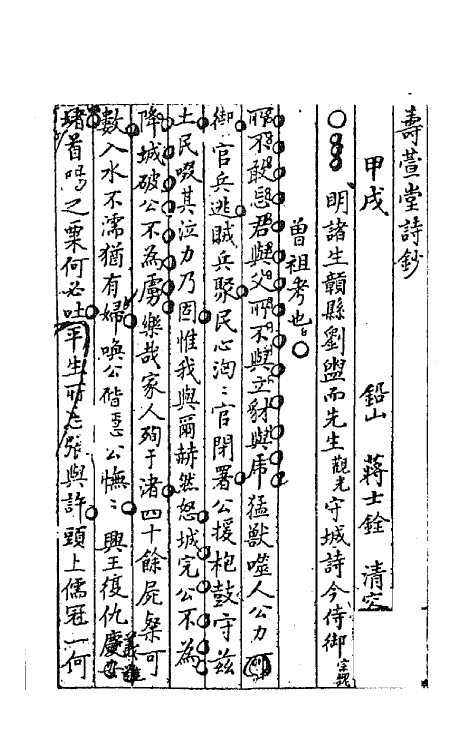 壽萱堂詩鈔
甲戌 鉛山 蔣士銓 清容
明諸生贛縣劉盥而先生觀光守城詩今侍御宗魏
曾祖考也
所不敢忘君與父所不與立豺與虎猛獸噬人公力
御官兵逃賊兵聚民心洶洶官閉署公援枹鼓守茲
土民啜其泣力乃固惟我與爾赫然怒城完公不為
降城破公不為虜樂哉家人殉于渚四十餘屍粲可
數入水不濡猶有婦喚公偕公憮憮興王復仇
諸首嗚之栗何必吐平生所志張與許頭上儒冠一何